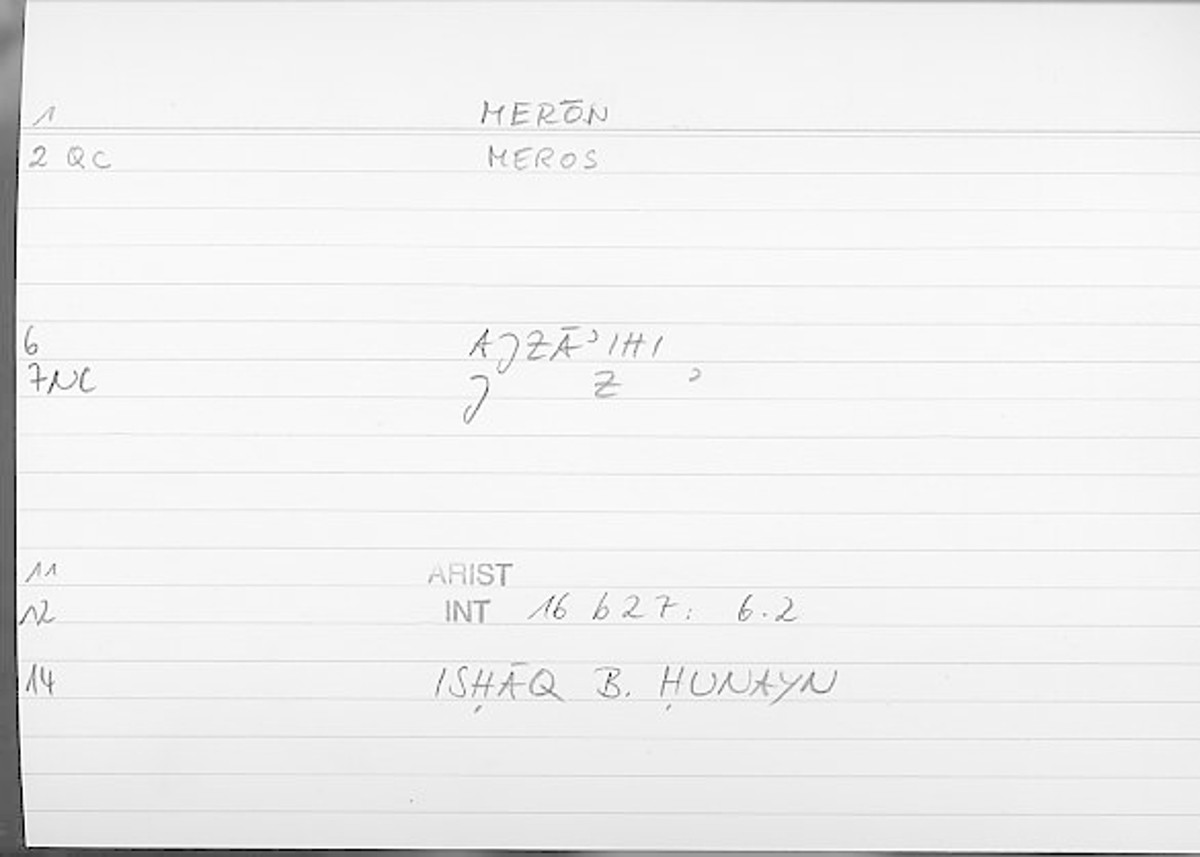 1 MERŌN
2 QC MEROS
6 AJZĀʾIHI
7NC J Z ʾ
11 ARIST
12 INT 16 b 27: 6.2
14 ISḤĀQ B. ḤUNAYN